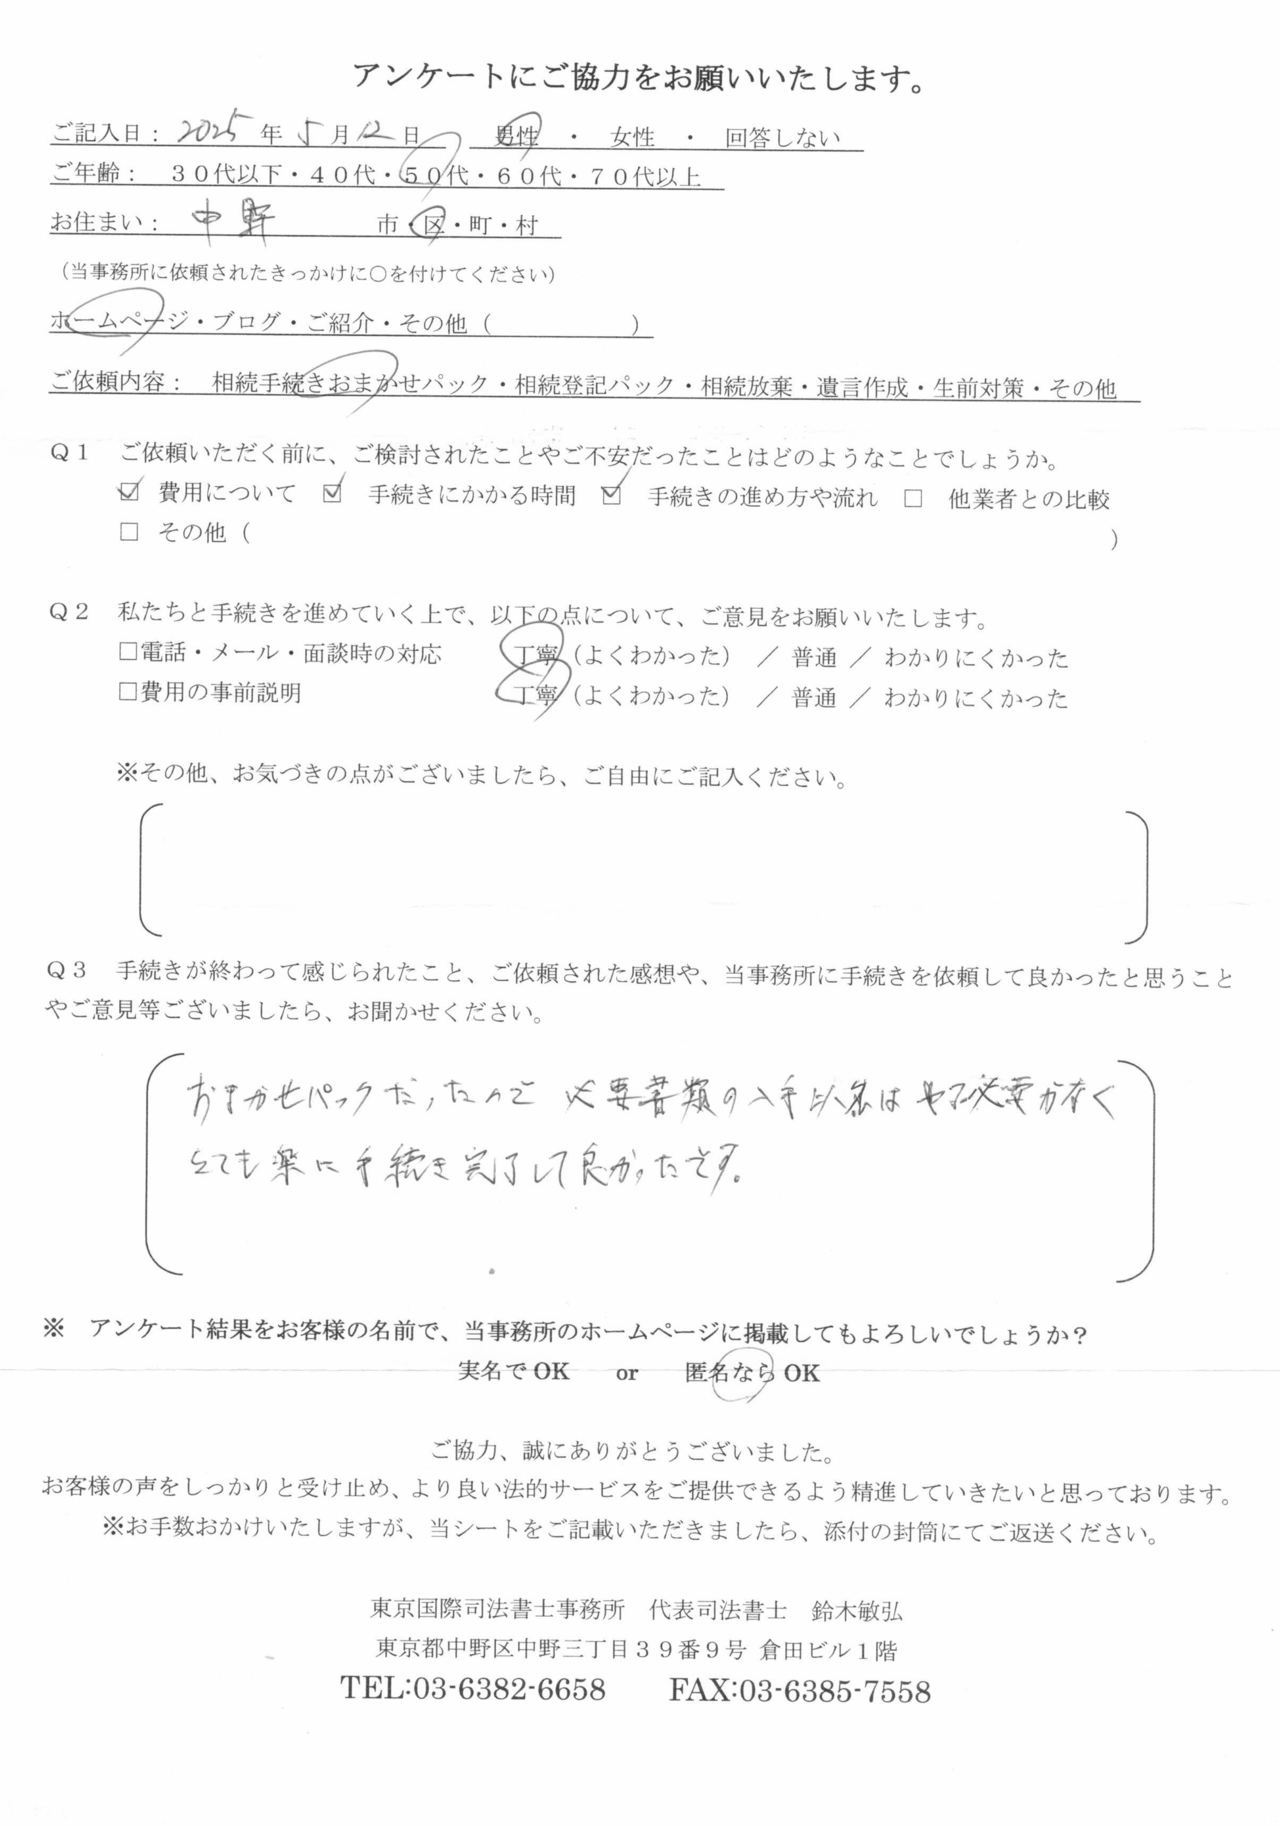 アンケートにご協力をお願いいたします。
ご記入日： 2025 年 5 月 12 日　男性 ・ 女性 ・ 回答しない
ご年齢： ３０代以下・４０代・５０代・６０代・７０代以上
お住まい： 中野 市・区・町・村
（当事務所に依頼されたきっかけに○を付けてください）
ホームページ・ブログ・ご紹介・その他（　　　　　　）
ご依頼内容： 相続手続きおまかせパック・相続登記パック・相続放棄・遺言作成・生前対策・その他
Ｑ１　ご依頼いただく前に、ご検討されたことやご不安だったことはどのようなことでしょうか。
☑ 費用について ☑ 手続きにかかる時間 ☑ 手続きの進め方や流れ □ 他業者との比較
□ その他（　　　　　　）
Ｑ２　私たちと手続きを進めていく上で、以下の点について、ご意見をお願いいたします。
□電話・メール・面談時の対応　丁寧（よくわかった） ／ 普通 ／ わかりにくかった
□費用の事前説明　丁寧（よくわかった） ／ 普通 ／ わかりにくかった
※その他、お気づきの点がございましたら、ご自由にご記入ください。
Ｑ３　手続きが終わって感じられたこと、ご依頼された感想や、当事務所に手続きを依頼して良かったと思うこと
やご意見等ございましたら、お聞かせください。
おまかせパックだったので 必要書類の入手以外は やる必要がなく
とても楽に手続き完了して良かったです。
※　アンケート結果をお客様の名前で、当事務所のホームページに掲載してもよろしいでしょうか？
実名で OK　or　匿名なら OK
ご協力、誠にありがとうございました。
お客様の声をしっかりと受け止め、より良い法的サービスをご提供できるよう精進していきたいと思っております。
※お手数おかけいたしますが、当シートをご記載いただきましたら、添付の封筒にてご返送ください。
東京国際司法書士事務所　代表司法書士　鈴木敏弘
東京都中野区中野三丁目３９番９号 倉田ビル１階
TEL:03-6382-6658　FAX:03-6385-7558